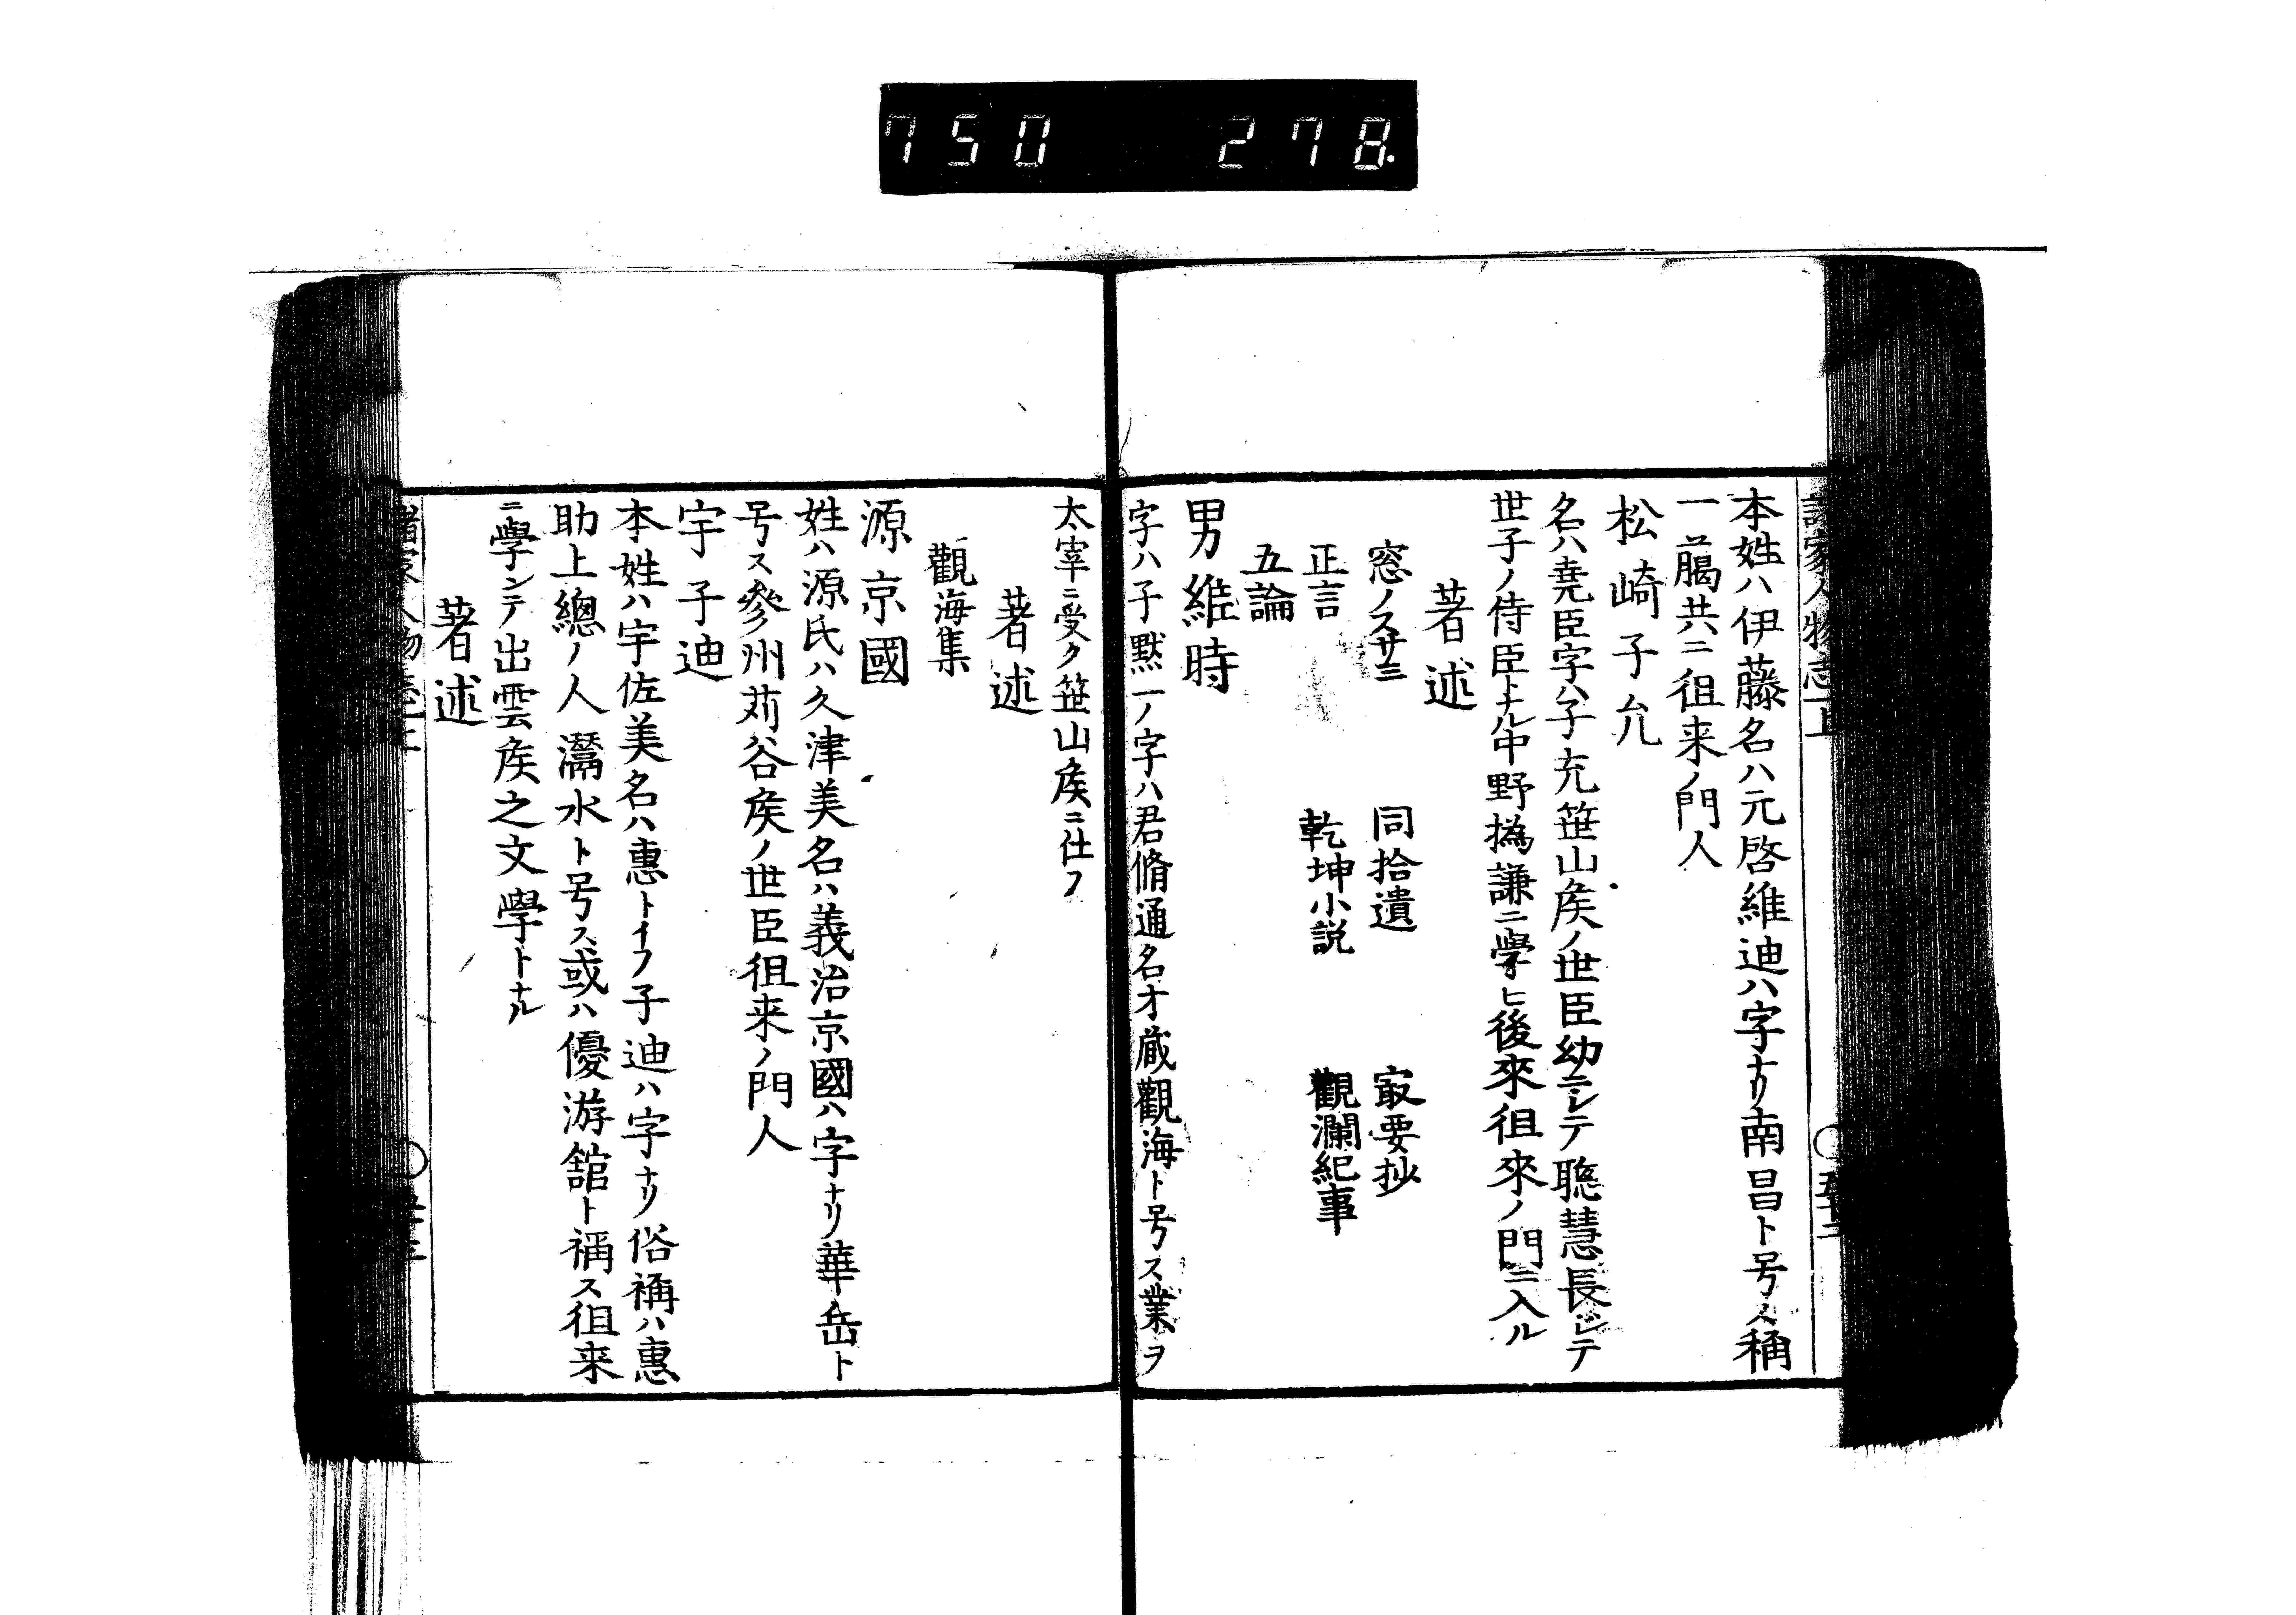 750 278.
本姓ハ伊藤名ハ元啓維迪ハ字ナリ南昌ト号ス稱
一﨟共ニ徂来ノ門人
松崎子允
名ハ堯臣字ハ子充笹山矦ノ世臣幼ニシテ聰慧長シテ
世子ノ侍臣トナル中野撝謙ニ學ヒ後來徂來ノ門ニ入ル
著述
窓ノスサミ 同拾遺 㝡要抄
正言 乾坤小説 觀瀾紀事
五論
男維時
字ハ子黙一ノ字ハ君脩通名才蔵觀海ト号ス業ヲ
太宰ニ受ク笹山矦ニ仕フ
著述
觀海集
源京國
姓ハ源氏ハ久津美名ハ義治京國ハ字ナリ華岳ト
号ス參州苅谷矦ノ世臣徂来ノ門人
宇子迪
本姓ハ宇佐美名ハ惠トイフ子迪ハ字ナリ俗稱ハ惠
助上總ノ人灊水ト号ス或ハ優游舘ト稱ス徂来
ニ學ンテ出雲矦之文學トナル
著述